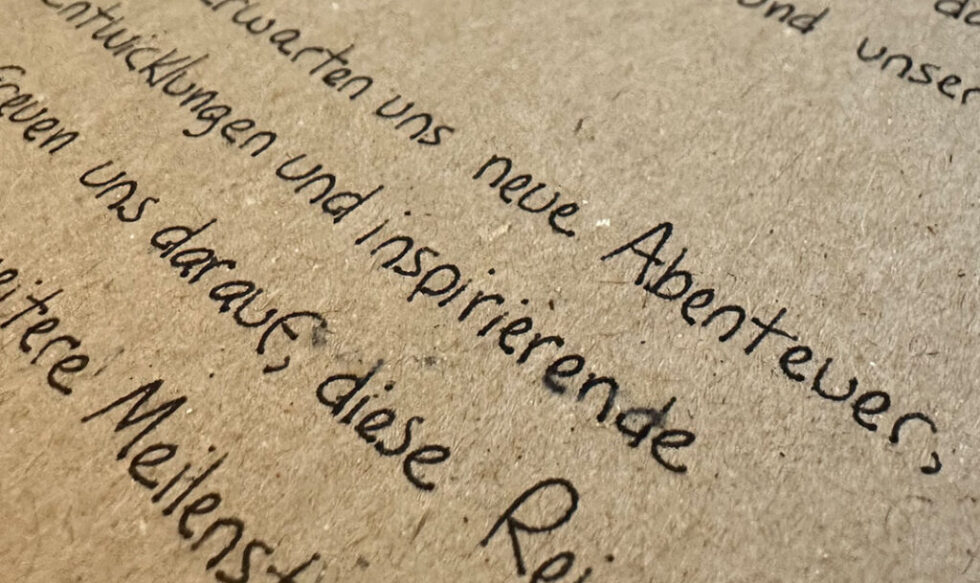 und unser
erwarten uns neue Abenteuer,
entwicklungen und inspirierende
freuen uns darauf, diese Rei
eitere Meilenst